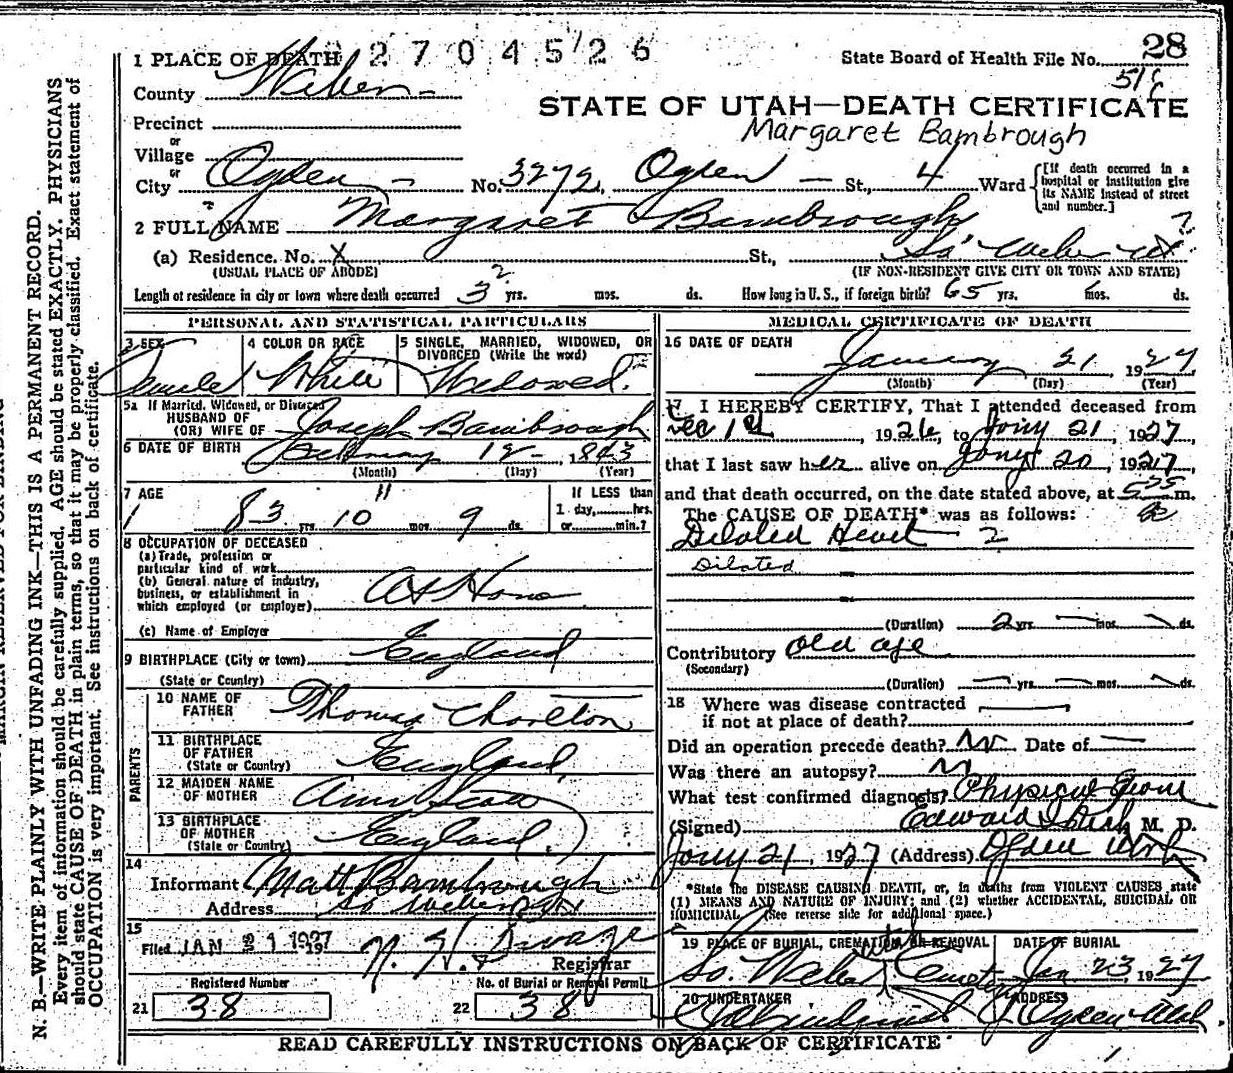 2704526
1 PLACE OF DEATH
State Board of Health File No. 28
County Weber
STATE OF UTAH—DEATH CERTIFICATE
Precinct
Margaret Bambrough
or
Village
or
City Ogden No. 3272, Ogden St., 4 Ward
[If death occurred in a hospital or institution give its NAME instead of street and number.]
2 FULL NAME Margaret Bambrough
(a) Residence. No. X St., So Weber Ut ?
(USUAL PLACE OF ABODE) (IF NON-RESIDENT GIVE CITY OR TOWN AND STATE)
Length of residence in city or town where death occurred 3 yrs. mos. ds. How long in U.S., if foreign birth? 65 yrs. mos. ds.
PERSONAL AND STATISTICAL PARTICULARS
3 SEX Female
4 COLOR OR RACE White
5 SINGLE, MARRIED, WIDOWED, OR DIVORCED (Write the word) Widowed.
5a If Married, Widowed, or Divorced
HUSBAND OF
(OR) WIFE OF Joseph Bambrough
6 DATE OF BIRTH February 12 1843
(Month) (Day) (Year)
7 AGE 83 yrs. 10 11 mos. 9 ds.
If LESS than
1 day, hrs.
or min.?
8 OCCUPATION OF DECEASED
(a) Trade, profession or
particular kind of work
(b) General nature of industry,
business, or establishment in
which employed (or employer) At Home
(c) Name of Employer
9 BIRTHPLACE (City or town) England
(State or Country)
PARENTS
10 NAME OF FATHER Thomas Charlton
11 BIRTHPLACE OF FATHER England
(State or Country)
12 MAIDEN NAME OF MOTHER Ann Scott
13 BIRTHPLACE OF MOTHER England.
(State or Country)
14
Informant Matt Bambrough
Address So Weber Ut
15
Filed JAN 21 1927
Registrar
Registered Number
21 38
No. of Burial or Removal Permit
22 38
MEDICAL CERTIFICATE OF DEATH
16 DATE OF DEATH
January 21, 1927
(Month) (Day) (Year)
17 I HEREBY CERTIFY, That I attended deceased from
Dec 1st, 1926, to Jany 21, 1927,
that I last saw her alive on Jany 20, 1927,
and that death occurred, on the date stated above, at 5 25 m.
The CAUSE OF DEATH* was as follows:
Dilated Heart 2
Dilated
(Duration) 2 yrs. mos. ds.
Contributory Old age
(Secondary)
(Duration) yrs. mos. ds.
18 Where was disease contracted
if not at place of death?
Did an operation precede death? No Date of
Was there an autopsy? No
What test confirmed diagnosis? Physical
(Signed) Edward M. D.
Jany 21, 1927 (Address) Ogden Utah
*State the DISEASE CAUSING DEATH, or, in deaths from VIOLENT CAUSES, state
(1) MEANS AND NATURE OF INJURY; and (2) whether ACCIDENTAL, SUICIDAL OR
HOMICIDAL. (See reverse side for additional space.)
19 PLACE OF BURIAL, CREMATION, OR REMOVAL
So. Weber Cemetery
DATE OF BURIAL
Jan 23, 1927
20 UNDERTAKER
ADDRESS
Ogden Utah.
READ CAREFULLY INSTRUCTIONS ON BACK OF CERTIFICATE
N. B.—WRITE PLAINLY WITH UNFADING INK—THIS IS A PERMANENT RECORD.
Every item of information should be carefully supplied. AGE should be stated EXACTLY. PHYSICIANS
should state CAUSE OF DEATH in plain terms, so that it may be properly classified. Exact statement of
OCCUPATION is very important. See instructions on back of certificate.